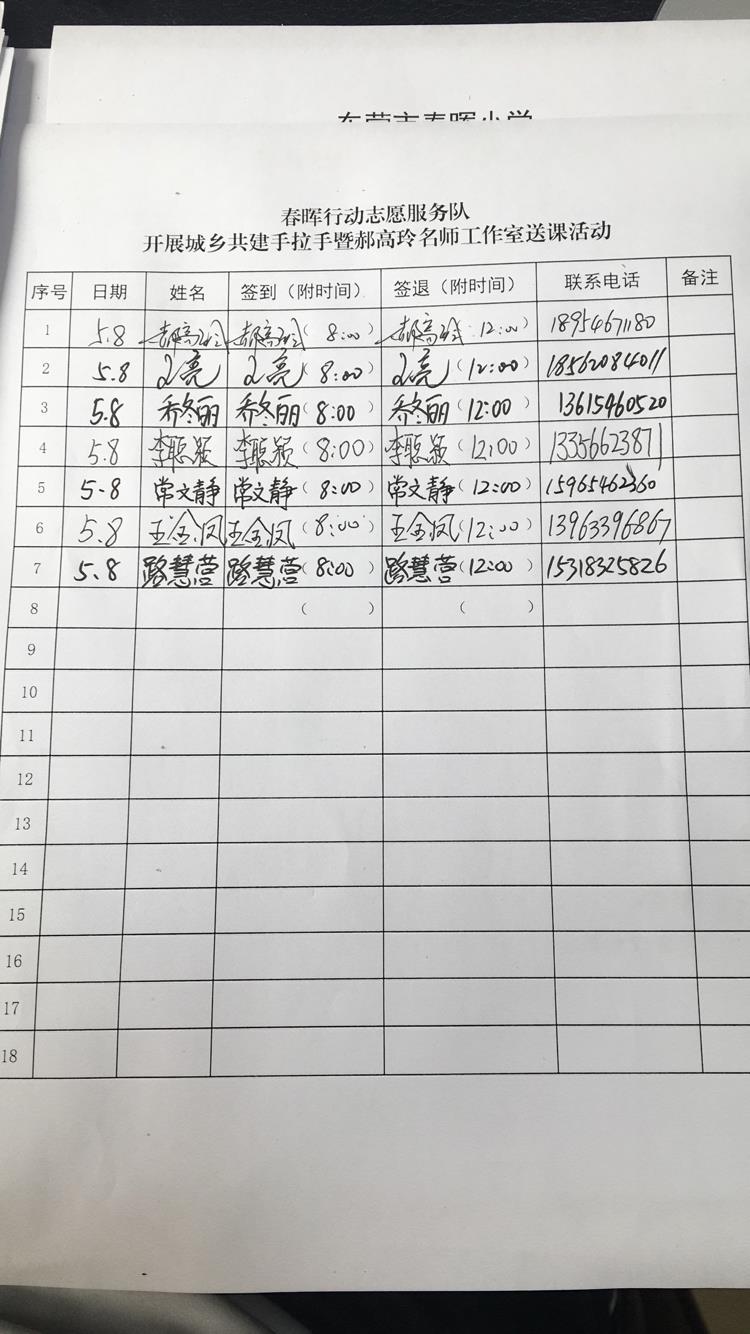 东营市春晖小学
春晖行动志愿服务队
开展城乡共建手拉手暨郝高玲名师工作室送课活动
序号 日期 姓名 签到（附时间） 签退（附时间） 联系电话 备注
1 5.8 郝高玲 郝高玲（8:00） 郝高玲（12:00） 18954671180
2 5.8 亮 亮（8:00） 亮（12:00） 18562084011
3 5.8 乔冬丽 乔冬丽（8:00） 乔冬丽（12:00） 13615460520
4 5.8 李聪颖 李聪颖（8:00） 李聪颖（12:00） 13356623871
5 5.8 常文静 常文静（8:00） 常文静（12:00） 15965462360
6 5.8 王金凤 王金凤（8:00） 王金凤（12:00） 13963396867
7 5.8 路慧营 路慧营（8:00） 路慧营（12:00） 15318325826
8 （ ） （ ）
9
10
11
12
13
14
15
16
17
18